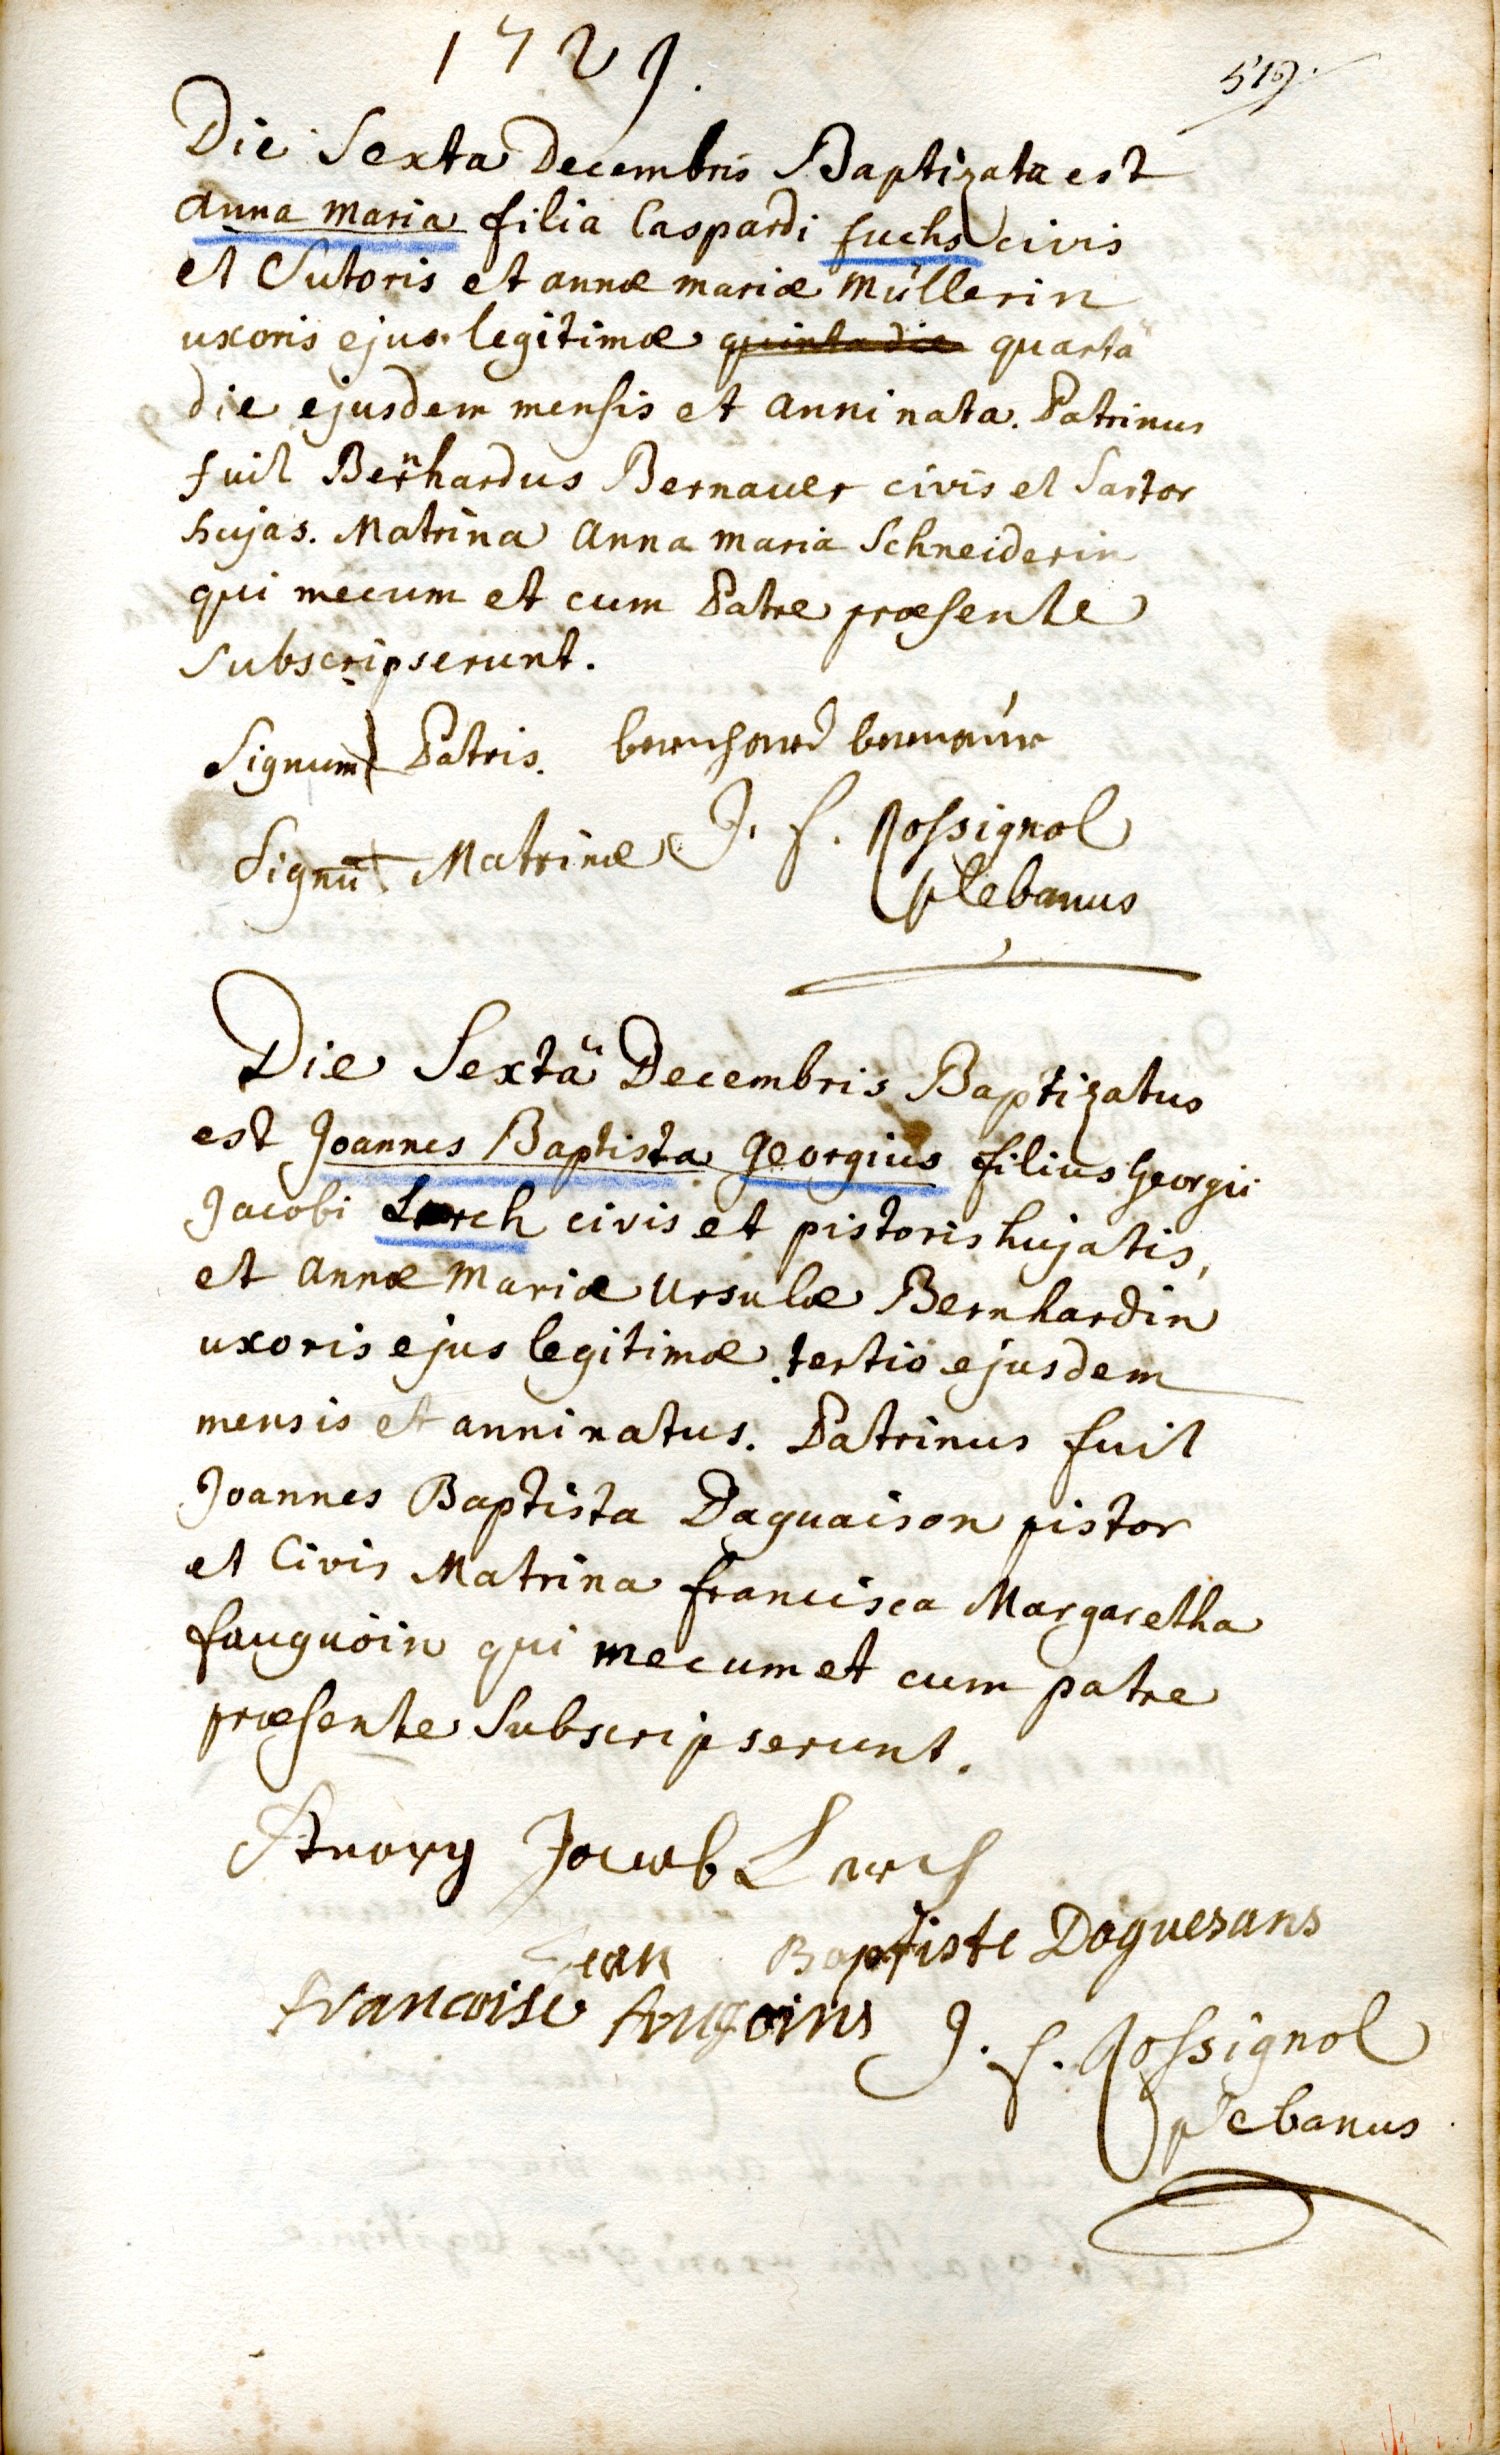 1721.
519.
Die Sexta Decembris Baptizata est
Anna Maria filia Caspardi fuchs civis
et Sutoris et annæ mariæ Müllerin
uxoris ejus legitimæ quinta die quartâ
die ejusdem mensis et anni nata. Patrinus
fuit Bernhardus Bernauer civis et Sartor
hujas. Matrina Anna maria Schneiderin
qui mecum et cum Patre præsente
subscripserunt.
Signum Patris. bernhard bernaur
Signū Matrinæ J. f. Rossignol
plebanus
Die Sextâ Decembris Baptizatus
est Joannes Baptista Georgius filius Georgii
Jacobi Lerch civis et pistoris hujatis,
et Annæ Mariæ Ursulæ Bernhardin
uxoris ejus legitimæ tertio ejusdem
mensis et anni natus. Patrinus fuit
Joannes Baptista Daguaison pistor
et Civis Matrina francisca Margaretha
fauguöin qui mecum et cum patre
præsente Subscripserunt.
Jacob Lerch
Jean Baptiste Doguesans
francoise
J. f. Rossignol
plebanus